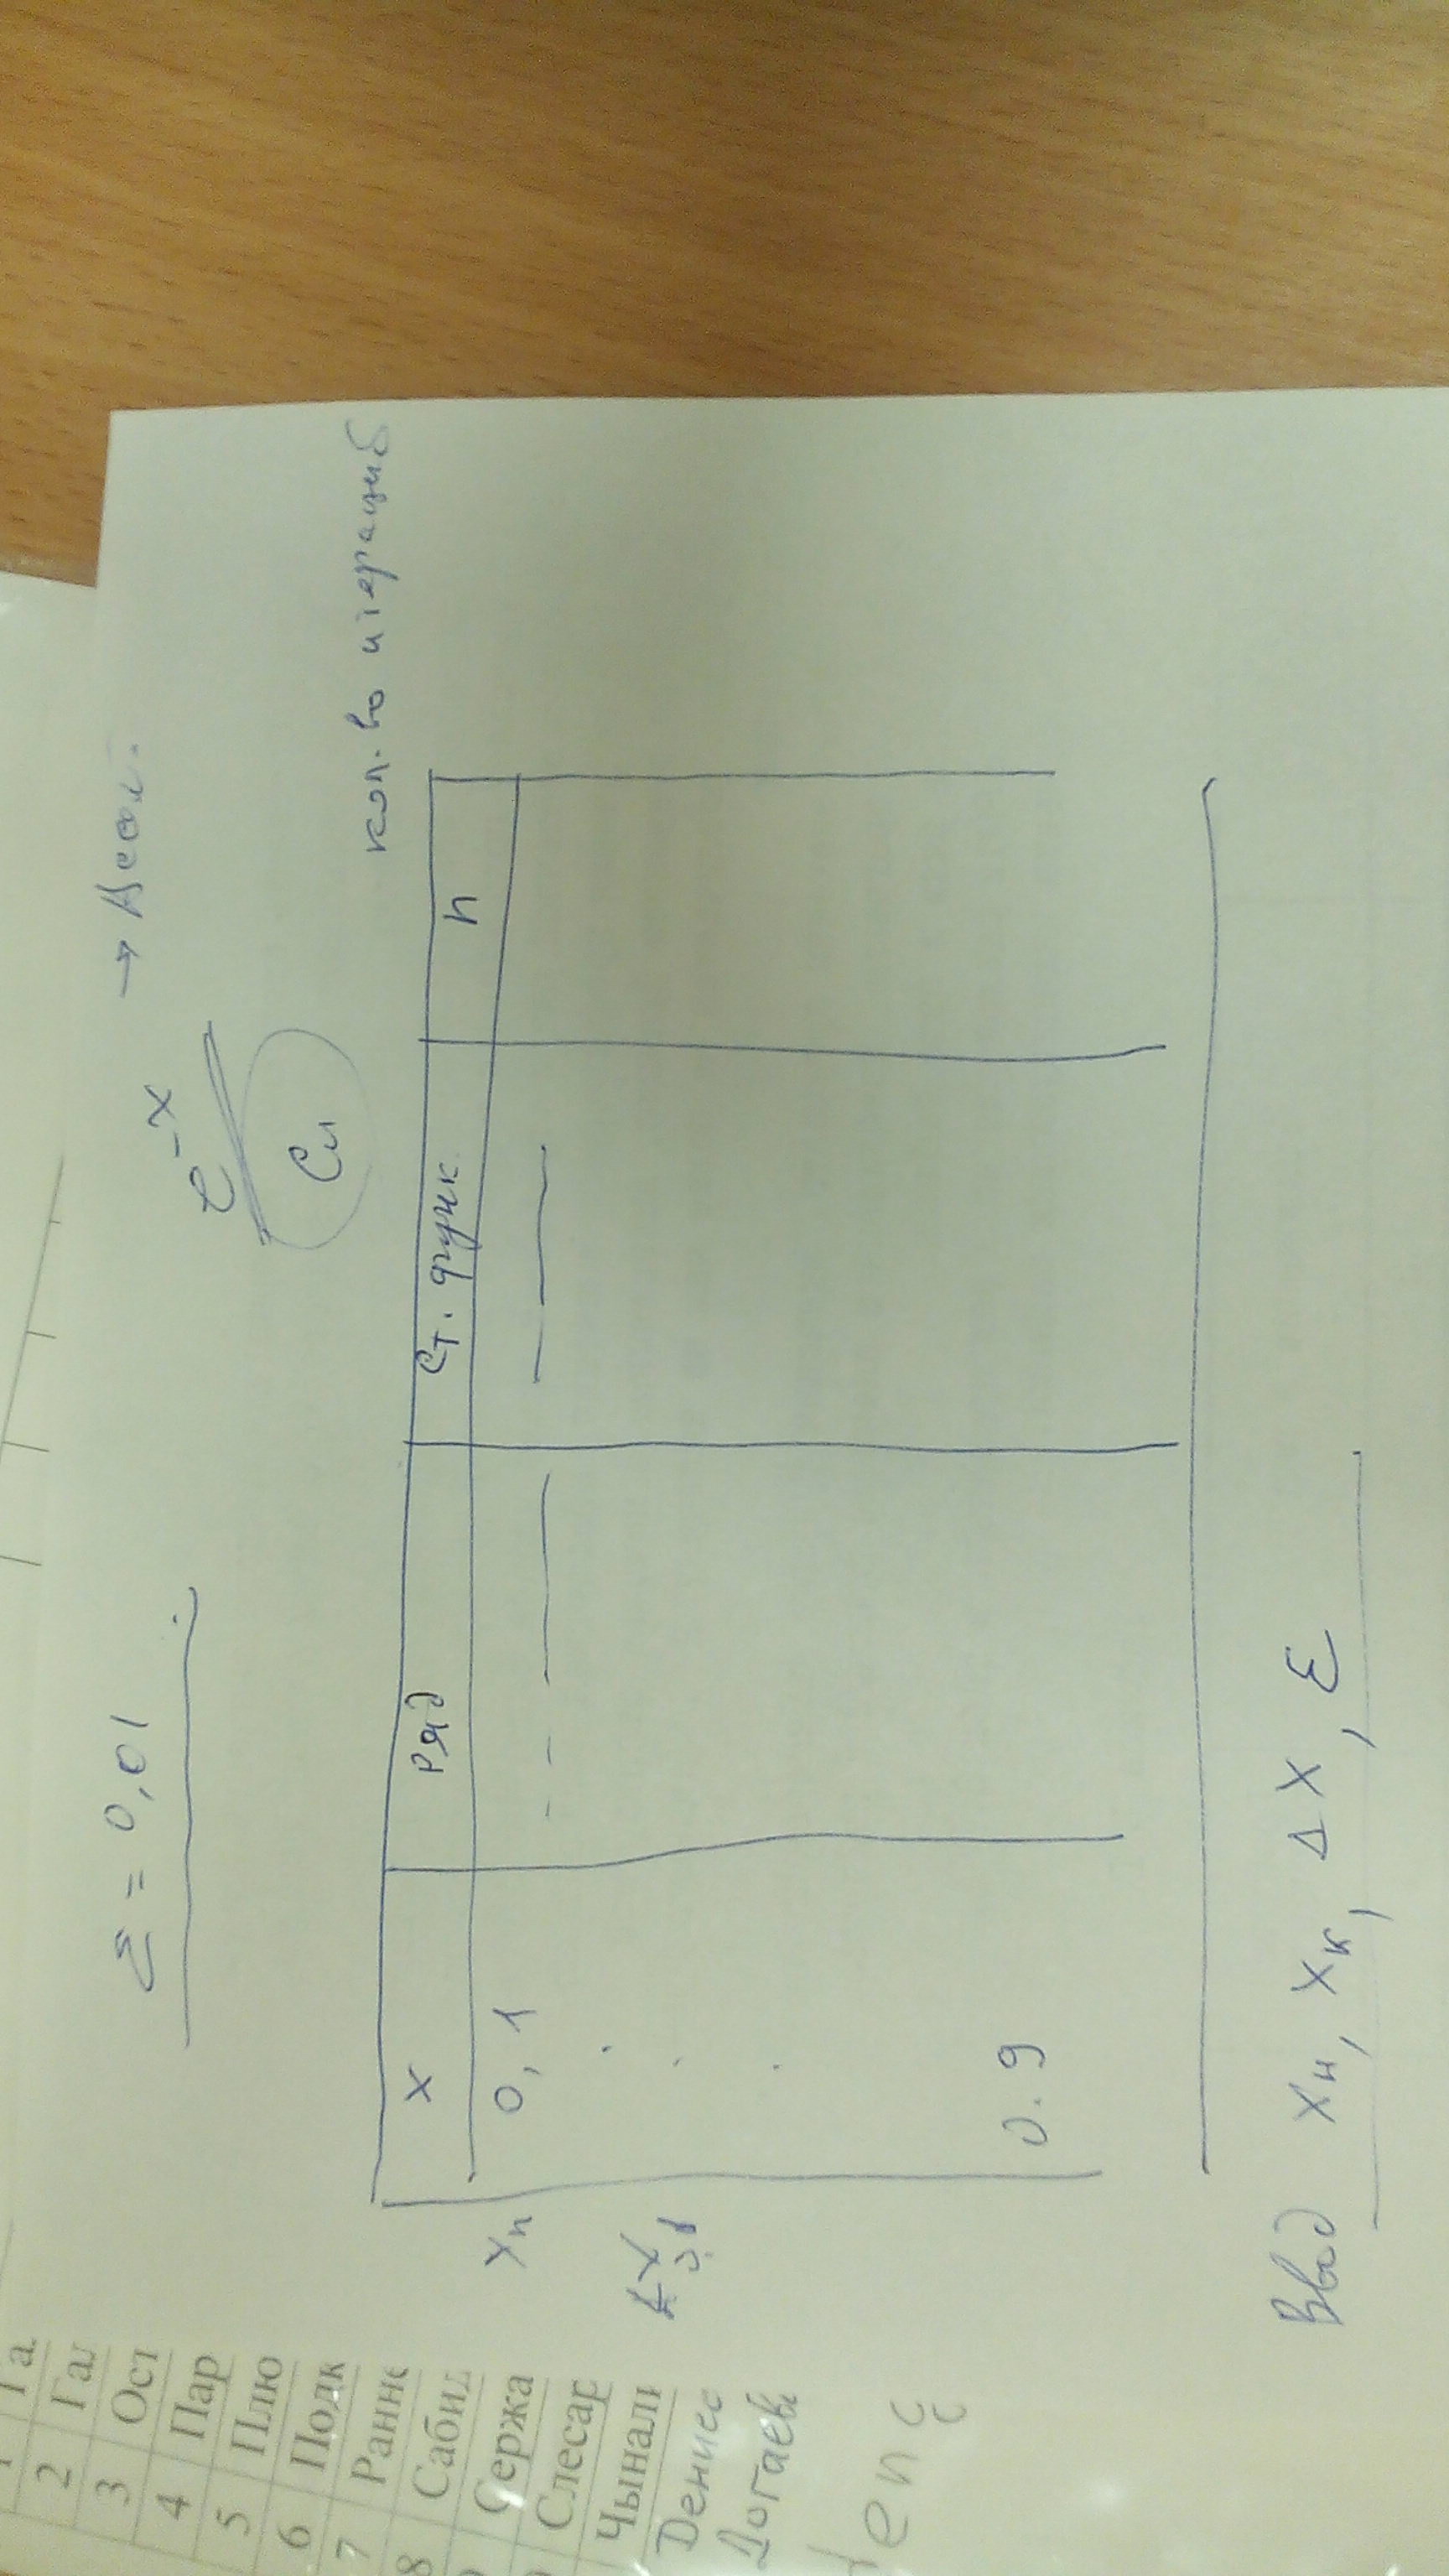 ε = 0,01
e⁻ˣ
Си
кол-во итераций
x | Ряд | Ст. функ. | n
xн 0,1
Δx
0,1
0.9
Ввод xн, xк, Δx, ε
1 Га
2 Гал
3 Ост
4 Пар
5 Плю
6 Подк
7 Ранне
8 Саби
Сержа
Слесар
Чынали
Денис
Догаев